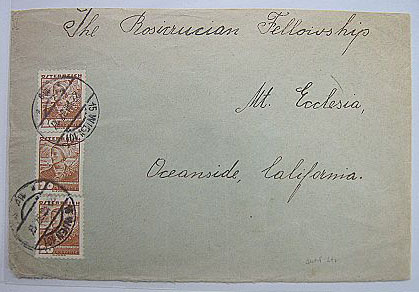 The Rosicrucian Fellowship
Mt. Ecclesia,
Oceanside, California.
ÖSTERREICH
15 WIEN 101
ÖSTERREICH
WIEN